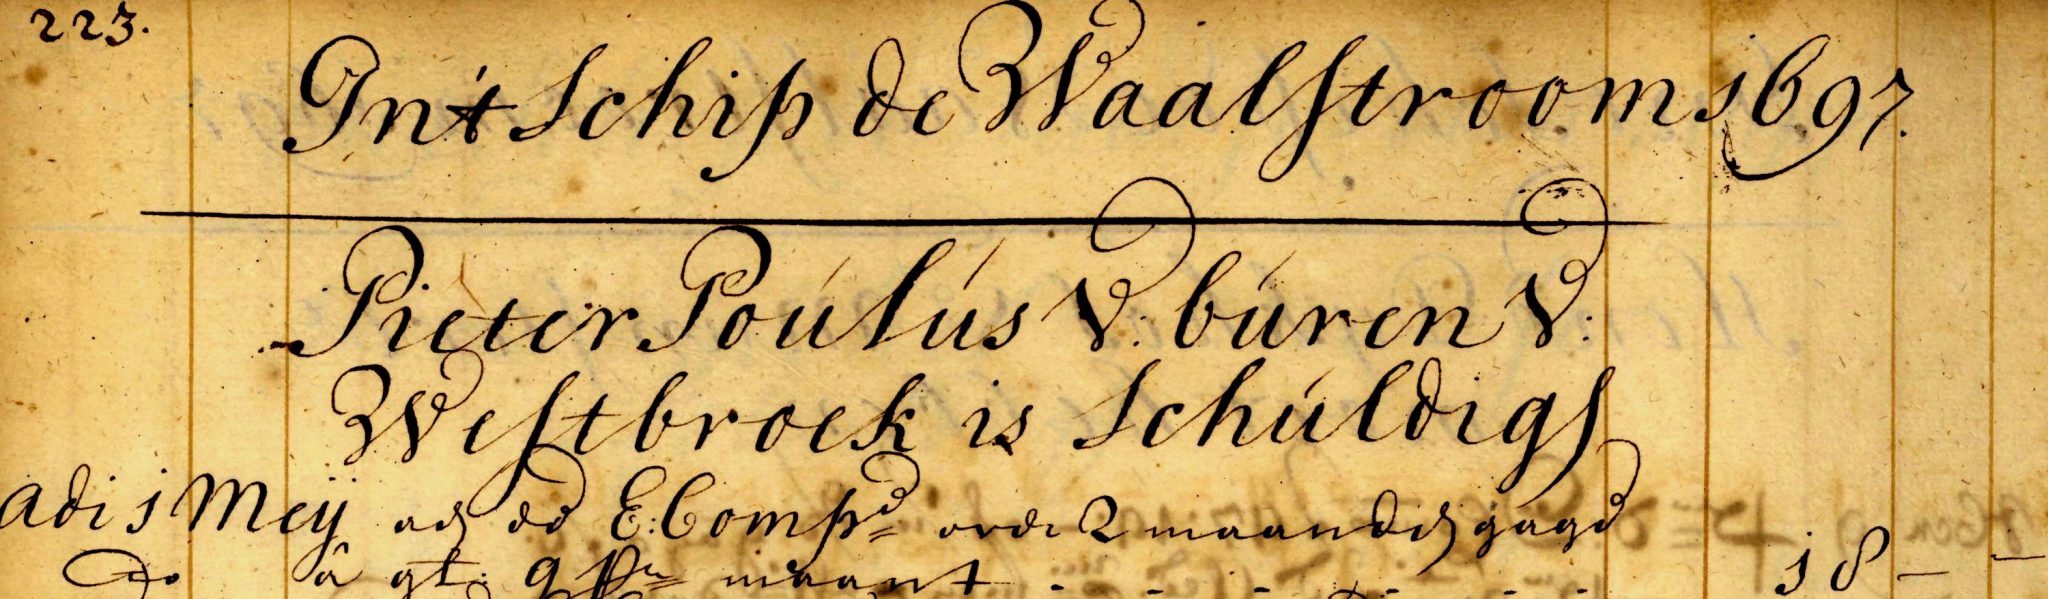 223.
In't Schip de Waalstroom 1697.
Pieter Poúlús V: búren V:
Westbroek is Schúldigh
Adi 1 Meij aen de E: Comp:e over 2 maanden gage
do â gl: 9 pr maant - - - - - 18 - -